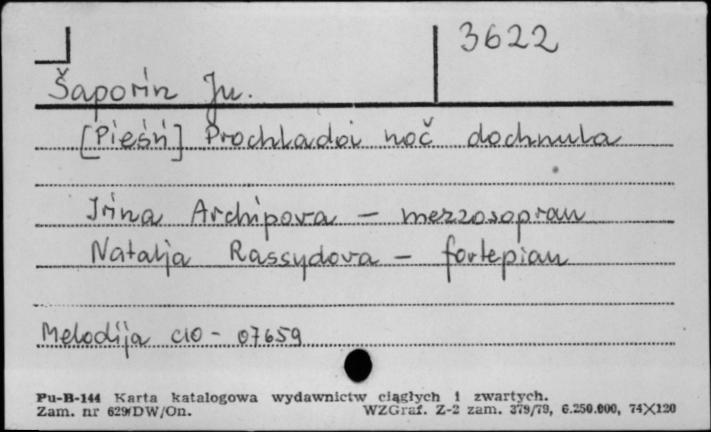 3622
Šaporin Ju.
[Pieśń] Prochladoi noč dochnula
Irina Archipova – mezzosopran
Natalja Rassydova – fortepian
Melodija C10 - 07659
Pu-B-144 Karta katalogowa wydawnictw ciągłych i zwartych.
Zam. nr 629/DW/On. WZGraf. Z-2 zam. 379/79, 6.250.000, 74X120